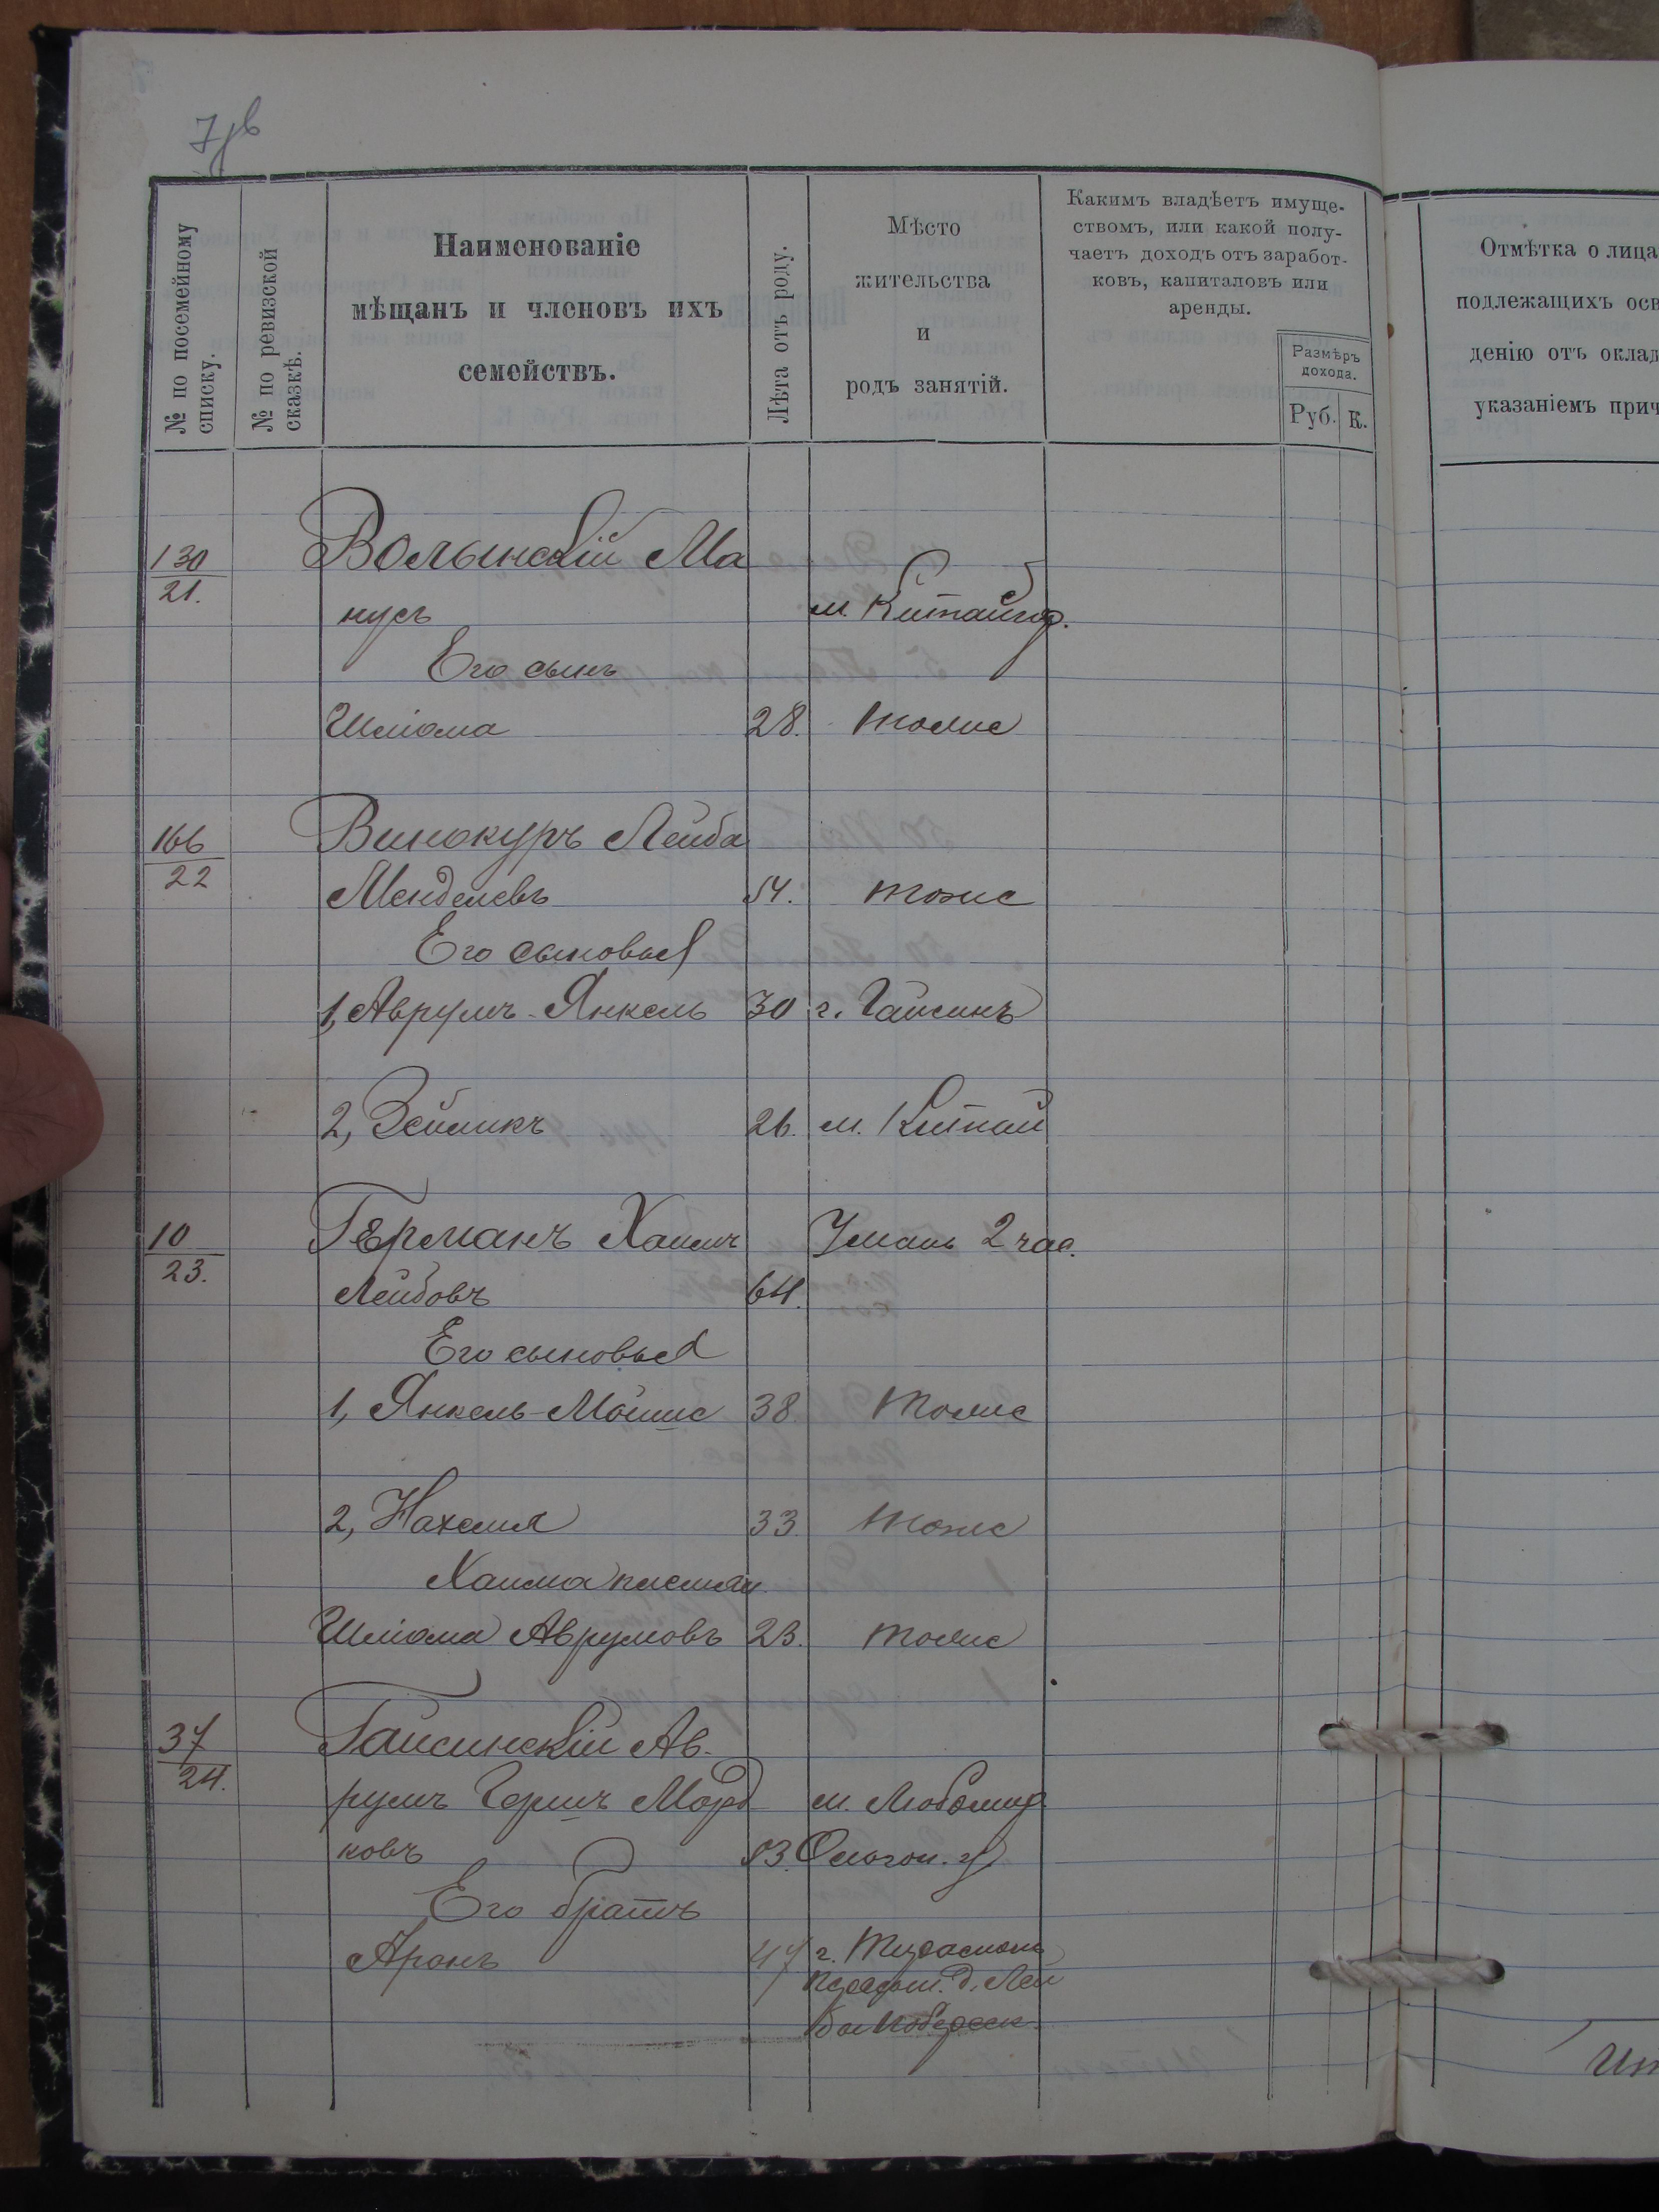 № по посемейному
списку.
№ по ревизской
сказкѣ.
Наименованіе
мѣщанъ и членовъ ихъ
семействъ.
Лѣта отъ роду.
Мѣсто
жительства
и
родъ занятій.
Какимъ владѣетъ имуще-
ствомъ, или какой полу-
чаетъ доходъ отъ заработ-
ковъ, капиталовъ или
аренды.
Размѣръ
дохода.
Руб. К.
Отмѣтка о лица
подлежащихъ осв
денію отъ оклад
указаніемъ прич
130
21.
Волынскій Ма
нусъ м. Китайгор.
Его сынъ
Шліома 28. тоже
166
22
Винокуръ Лейба
Менделевъ 54. тоже
Его сыновья
1, Аврумъ-Янкель 30 г. Гайсинъ
2, Зейликъ 26. м. Китай
10
23.
Германъ Хаимъ Умань 2 час.
Лейбовъ 64.
Его сыновья
1, Янкель-Мошис 38 тоже
2, Нахемия 33 тоже
Хаима племян.
Шліома Аврумовъ 23. тоже
37
24.
Гайсинскій Ав-
румъ Гершъ Морд
ковъ 53.
м. Любомир
Его братъ
Аронъ 47 г.
д. Лей
Ит